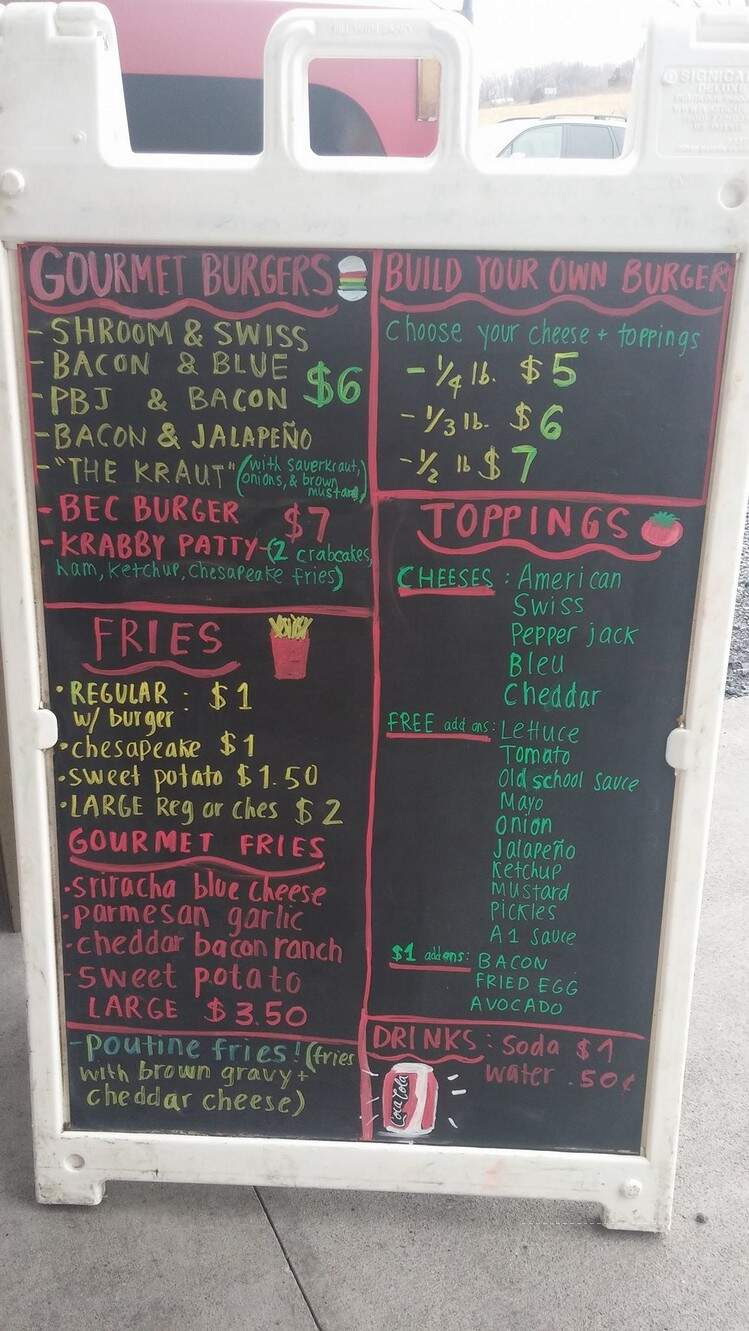 GOURMET BURGERS
- SHROOM & SWISS
- BACON & BLUE
- PBJ & BACON
$6
- BACON & JALAPEÑO
- "THE KRAUT" (with sauerkraut,
onions, & brown
mustard)
- BEC BURGER
$7
- KRABBY PATTY - (2 crabcakes,
ham, ketchup, Chesapeake fries)
FRIES
• REGULAR : $1
w/ burger
• chesapeake $1
• sweet potato $1.50
• LARGE Reg or Ches $2
GOURMET FRIES
• sriracha blue cheese
• parmesan garlic
• cheddar bacon ranch
- sweet potato
LARGE $3.50
- Poutine fries! (fries
with brown gravy +
cheddar cheese)
BUILD YOUR OWN BURGER
Choose your cheese + toppings
- 1/4 lb. $5
- 1/3 lb. $6
- 1/2 lb $7
TOPPINGS
CHEESES : American
Swiss
Pepper jack
Bleu
Cheddar
FREE add ons: Lettuce
Tomato
Old school sauce
Mayo
Onion
Jalapeño
Ketchup
Mustard
Pickles
A1 Sauce
$1 add ons: BACON
FRIED EGG
AVOCADO
DRINKS : Soda $1
water .50¢
Coca Cola